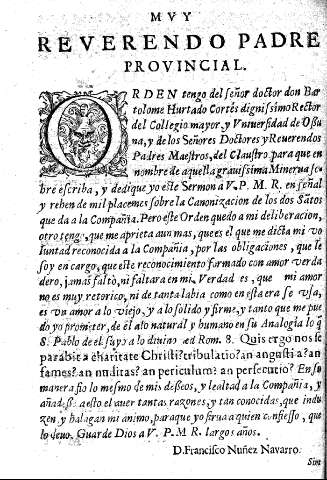 MVY
REVERENDO PADRE
PROVINCIAL.
ORDEN tengo del señor doctor don Bar
tolome Hurtado Cortès dignissimo Rector
del Collegio mayor, y Vniuersidad de Ossu
na, y de los Señores Doctores y Reuerendos
Padres Maestros, del Claustro para que en
nombre de aquella grauissima Minerua, ce
bre escriba, y dedique yo este Sermon a V. P. M. R. en señal
y rehen de mil placemes sobre la Canonizacion de los dos Sātos
que da a la Compañia. Pero este Orden quedo a mi deliberacion,
otro tengo, que me aprieta aun mas, que es el que me dicta mi vo
luntad reconocida a la Compañia, por las obligaciones, que le
soy en cargo, que este reconocimiento formado con amor verda
dero, jamas faltò, ni faltara en mi. Verdad es, que mi amor
no es muy retorico, ni de tanta labia como en esta era se vsa,
es vn amor a lo viejo, y a lo solido y firme, y tanto que me pue
do yo prometer, de el a lo natural y humano en su Analogia lo q̄
S. Pablo de el suyo a lo diuino ad Rom. 8. Quis ergo nos se
parabit a charitate Christi? tribulatio? an angustia? an
fames? an nuditas? an periculum? an persecutio? En su
manera fio lo mesmo de mis desseos, y lealtad a la Compañia, y
añadese a esto el auer tantas razones, y tan conocidas, que indu
zen, y halagan mi animo, para que yo sirua a quien confiesso, que
lo deuo. Guarde Dios a V. P. M. R. largos años.
D. Francisco Nuñez Navarro.
Sin